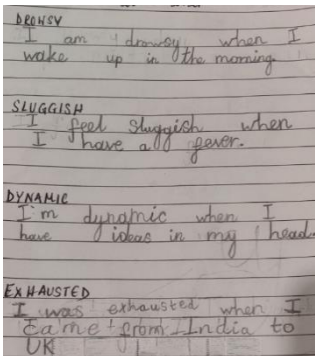 DROWSY
I am drowsy when I
wake up in the morning.
SLUGGISH
I feel sluggish when
I have a fever.
DYNAMIC
I'm dynamic when I
have ideas in my head.
EXHAUSTED
I was exhausted when I
came from India to
UK